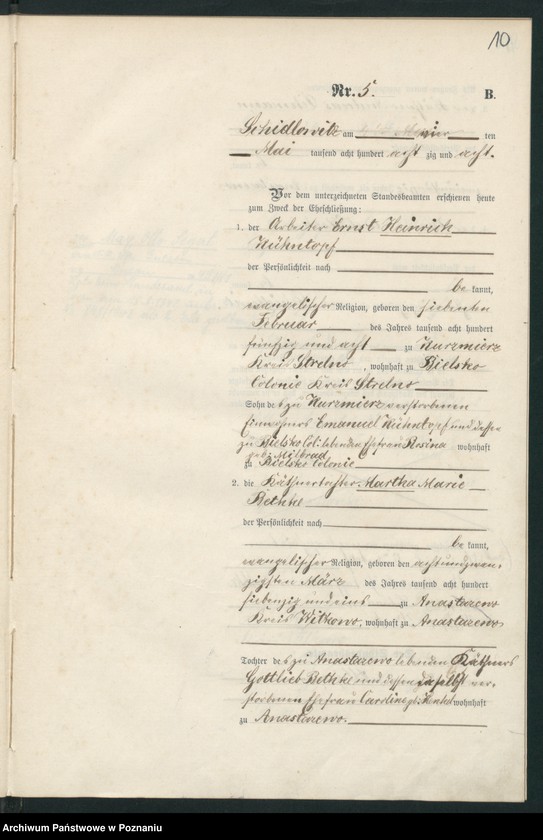 10
Nr. 5.
B.
Schidlowitz am vier ten
Mai tausend acht hundert acht zig und acht.
Vor dem unterzeichneten Standesbeamten erschienen heute
zum Zweck der Eheschließung:
1. der Arbeiter Ernst Heinrich
Kühntopf
der Persönlichkeit nach
be kannt,
evangelischer Religion, geboren den siebenten
Februar des Jahres tausend acht hundert
fünfzig und acht zu Kurzmierz
Kreis Strelno, wohnhaft zu Bielsko
Colonie Kreis Strelno
Sohn des zu Kurzmierz verstorbenen
Einwohners Emanuel Kühntopf und dessen
zu Bielsko Col: lebenden Ehefrau Rosina wohnhaft
geb. Milbrad
zu Bielsko Colonie
2. die Käthnertochter Martha Marie
Bethke
der Persönlichkeit nach
be kannt,
evangelischer Religion, geboren den achtundzwan-
zigsten März des Jahres tausend acht hundert
siebenzig und eins zu Anastazewo
Kreis Witkowo, wohnhaft zu Anastazewo
Tochter des zu Anastazewo lebenden Käthners
Gottlieb Bethke und dessen daselbst ver-
storbenen Ehefrau Caroline geb. Henkel wohnhaft
zu Anastazewo.
Archiwum Państwowe w Poznaniu